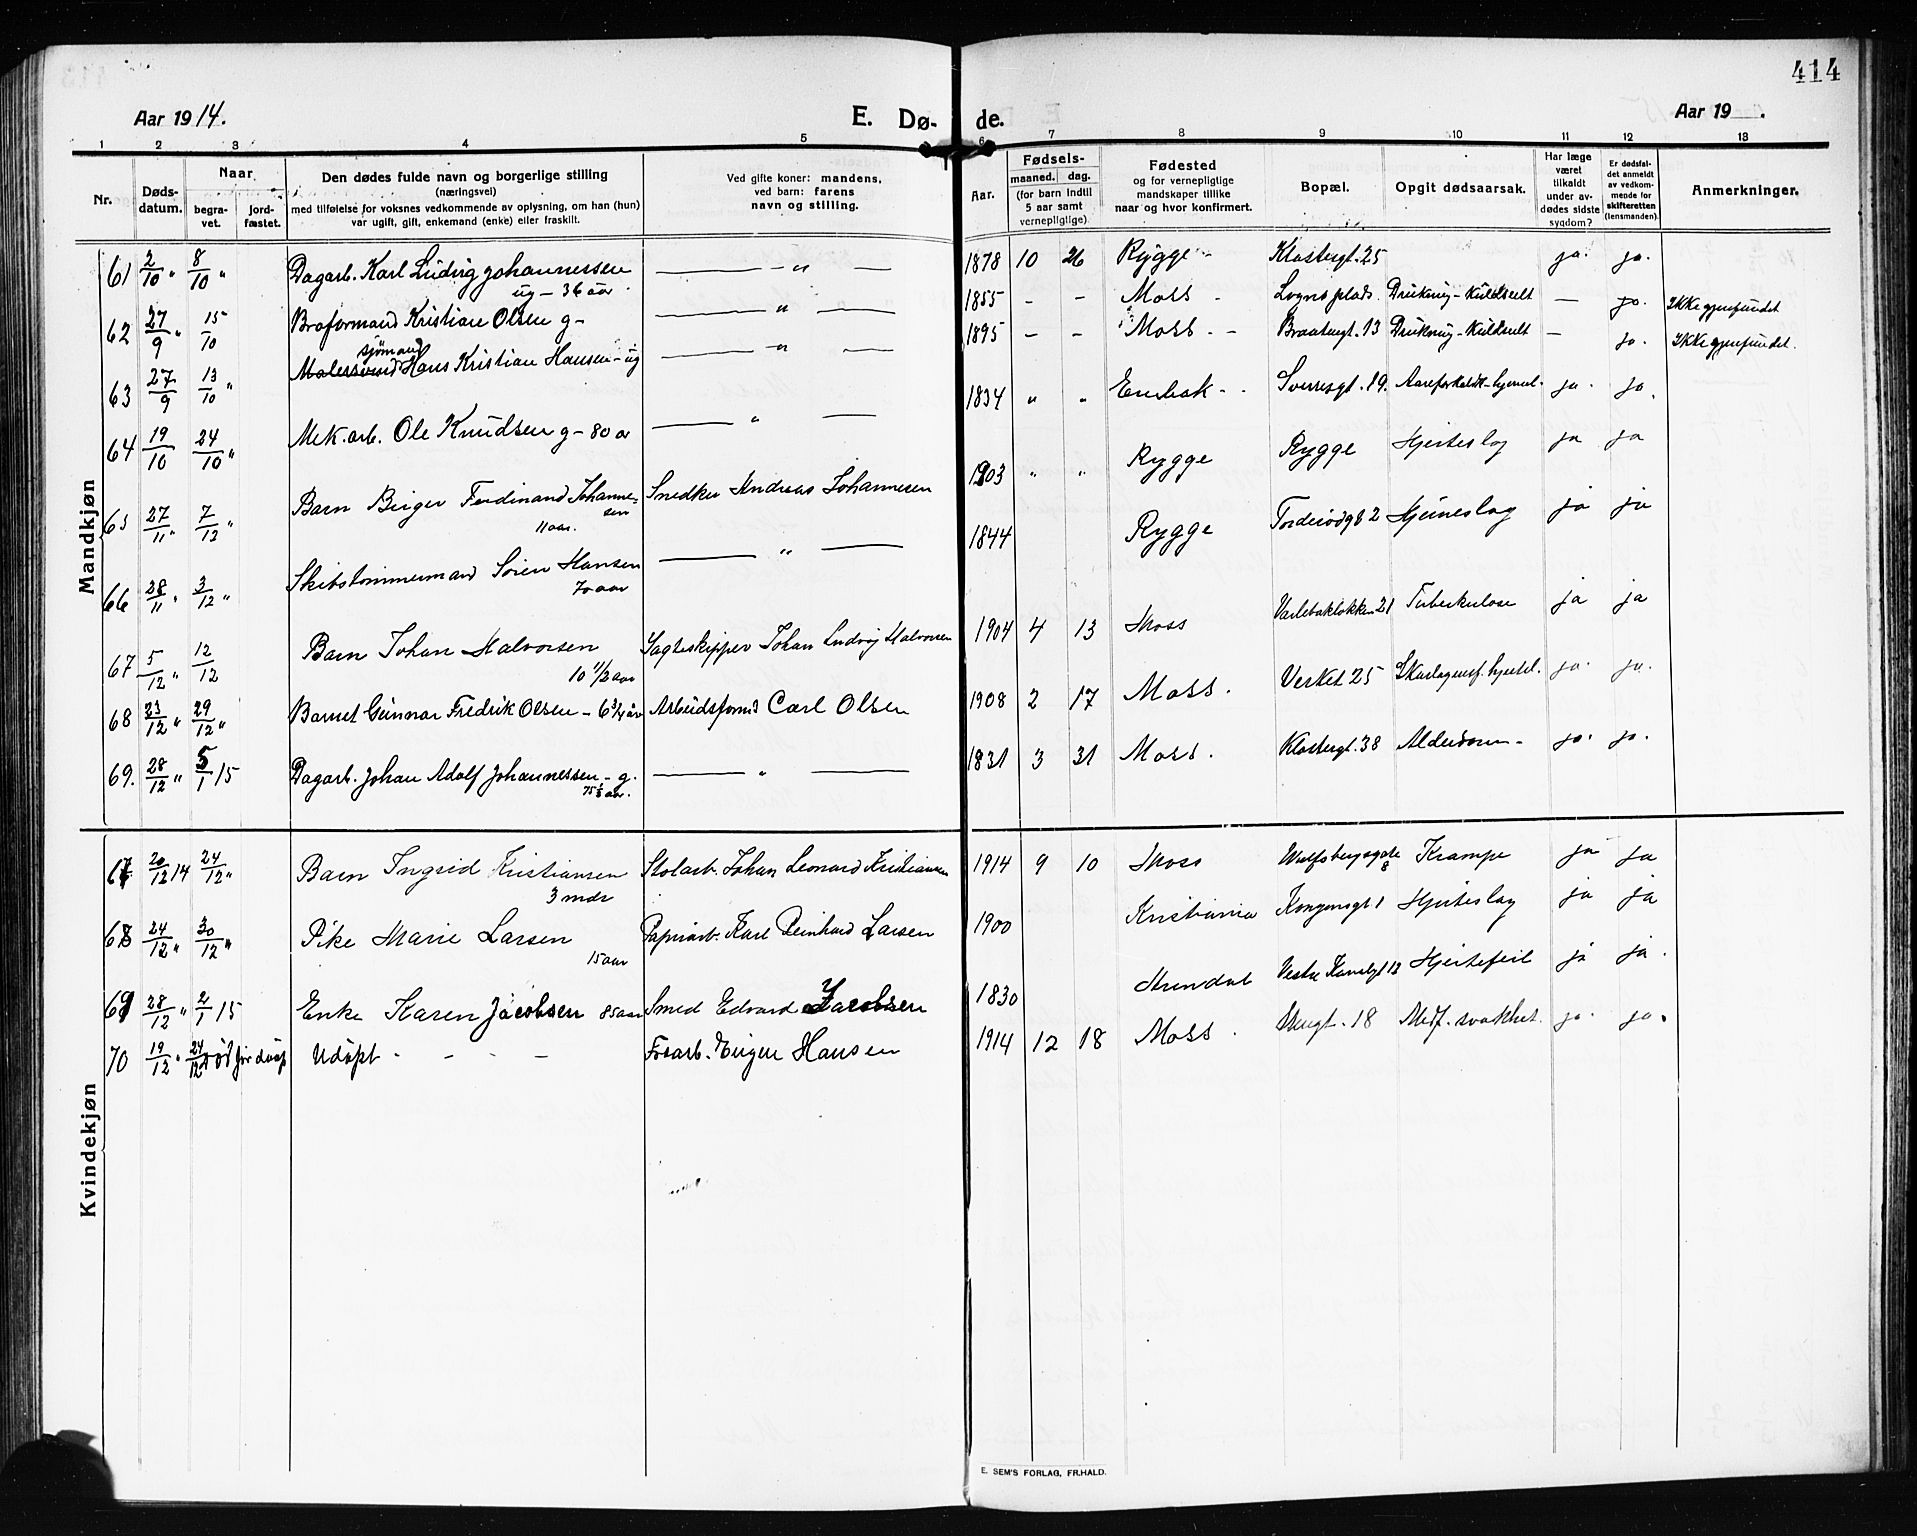 414
Aar 1914.
E. Dø- de.
Aar 19 .
1 2 3 4 5 6 7 8 9 10 11 12 13
Nr.
Døds-
datum.
Naar
begra-
vet.
jord-
fæstet.
Den dødes fulde navn og borgerlige stilling
(næringsvei)
med tilføielse for voksnes vedkommende av oplysning, om han (hun)
var ugift, gift, enkemand (enke) eller fraskilt.
Ved gifte koner: mandens,
ved barn: farens
navn og stilling.
Aar.
Fødsels-
maaned. dag.
(for barn indtil
5 aar samt
vernepligtige).
Fødested
og for vernepligtige
mandskaper tillike
naar og hvor konfirmert.
Bopæl.
Opgit dødsaarsak.
Har læge
været
tilkaldt
under av-
dødes sidste
sygdom?
Er dødsfal-
det anmeldt
av vedkom-
mende for
skifteretten
(lensmanden).
Anmerkninger.
Mandkjøn
61 2/10 " 8/10 " Dagarb. Karl Ludvig Johannessen — " — 1878 10 26 Rygge - Klostergt. 25 ja. ja.
ug - 36 aar.
62 27/9 " 15/10 Braformand Kristian Olsen g- — " — 1855 - - Moss - Logns plads. Drukning - Kuldseilt — ja. Ikke gjenfundet
sjømand
63 27/9 13/10 " Malersvend Hans Kristian Hansen - ug — " — 1895 - - Moss. - Braatengt. 13 Drukning - Kuldseilt — ja. Ikke gjenfundet.
64 19/10 24/10 " Mek. arb. Ole Knudsen g - 80 aar — " — 1834 " " Enebak - Sverresgt. 19. Aareforkalk - hjernebl. ja. ja.
65 27/11 " 7/12 " Barn Birger Ferdinand Johanne-
sen
11 aar. Snedker Andreas Johannesen 1903 " " Rygge Rygge Hjerteslag ja ja
66 28/11 " 3/12 " Skibstømmermand Sören Hansen
70 aar — " — 1844 Rygge Torderødgt 2 Hjerneslag ja ja
67 5/12 " 12/12 Barn Johan Halvorsen
10 1/2 aar Jagteskipper Johan Ludvig Halvorsen 1904 4 13 Moss Varlebakløkken 21 Tuberkulose ja ja
68 23/12 " 29/12 " Barnet Gunnar Fredrik Olsen - 6 3/4 år Arbeidsformd Carl Olsen 1908 2 17 Moss. Verket 25 Skarlagensf. hjertel. ja. ja.
69. 28/12 " 5/1 15 Dagarb. Johan Adolf Johannessen - g.
aar. — " — 1831 3 31 Moss. Klostergt. 38 Alderdom - ja. ja.
Kvindekjøn
67 20/12 14 24/12 " Barn Ingrid Kristiansen
3 mdr Stolarb. Johan Leonard Kristiansen 1914 9 10 Moss Wulfsbergsgate
8 Krampe ja ja
68 24/12 " 30/12 " Pike Marie Larsen
15 aar Papirarb. Karl Reinhard Larsen 1900 Kristiania Kongensgt 1 Hjerteslag ja ja
69 28/12 " 2/1 15 Enke Karen Jacobsen 85 aar Smed Edvard Jacobsen 1830 Vestre Kanalgt 12 Hjertefeil ja ja.
70 19/12 " 24/12 død før dåp Udöpt - - - - Fosarb. Eigen Hansen 1914 12 18 Moss. 18 Medf. svakhet. ja. ja.
E. SEM'S FORLAG, FR.HALD.